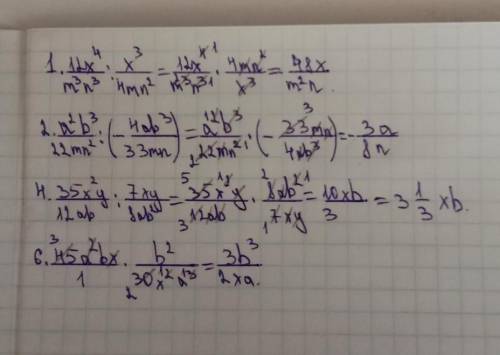 1. 12x⁴/m³n³ : x³/4mn² = 12x⁴ ¹/m³n³ ¹ · 4mn²/x³ = 48x/m²n.
2. a²b³/22mn² : (-4ab³/33mn) = a¹²b³/₂22mn² ¹ · (-33³mn/4ab³) = -3a/8n
4. 35x²y/12ab : 7xy/8ab² = ⁵35x¹²y/₃12ab · ²8ab² ¹/₁7xy = 10xb/3 = 3 1/3 xb.
6. ³45a²bx/1 · b²/₂30x¹²a¹³ = 3b³/2xa.